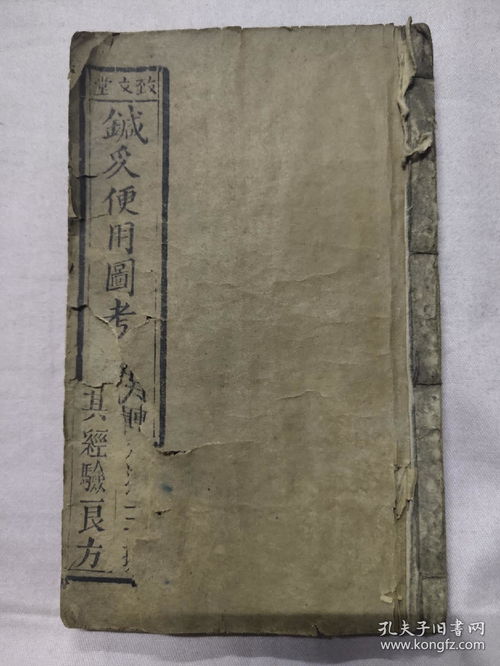 致文堂
鍼灸便用圖考
其經驗良方
孔夫子旧书网
www.kongfz.com